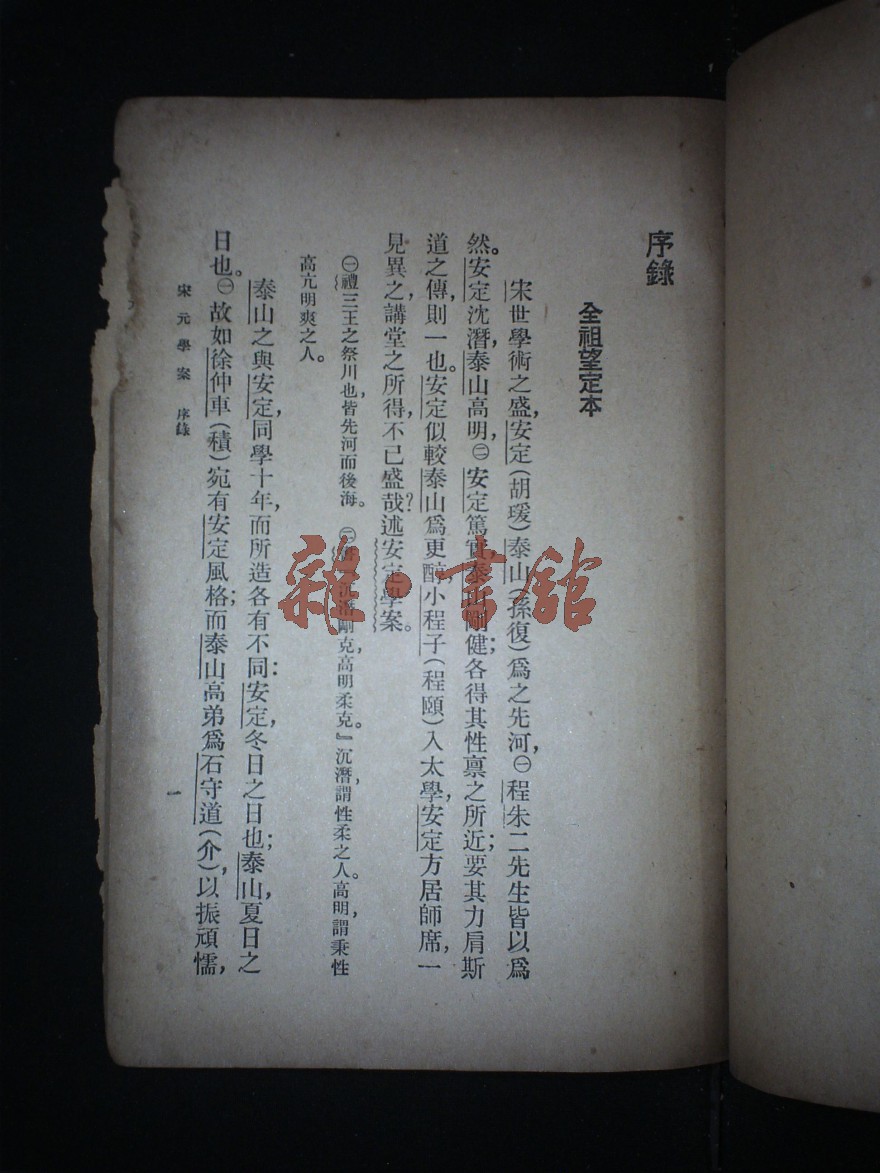 序錄
全祖望定本
宋世學術之盛,安定(胡瑗)泰山(孫復)爲之先河,㊀程朱二先生皆以爲
然。安定沈潛,泰山高明,㊁安定篤實,泰山剛健;各得其性禀之所近;要其力肩斯
道之傳,則一也。安定似較泰山爲更醇,小程子(程頤)入太學,安定方居師席,一
見異之,講堂之所得,不已盛哉?述安定學案。
㊀禮三王之祭川也,皆先河而後海。㊁沉潛剛克,高明柔克。』沉潛,謂性柔之人。高明,謂秉性
高亢明爽之人。
泰山之與安定,同學十年,而所造各有不同:安定,冬日之日也;泰山,夏日之
日也。㊀故如徐仲車(積)宛有安定風格;而泰山高弟爲石守道(介),以振頑懦,
宋元學案 序錄
一
雜·書館